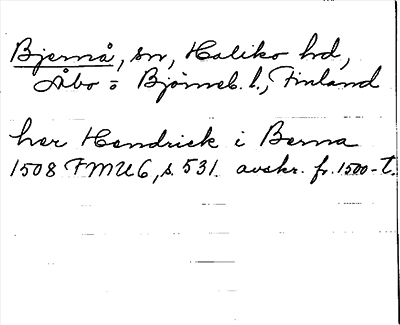 Bjernå, sn, Haliko hd,
Åbo = Björneb. l., Finland
her Hendrick i Berna
1508 FMU6, s. 531. avskr. fr. 1500-t.